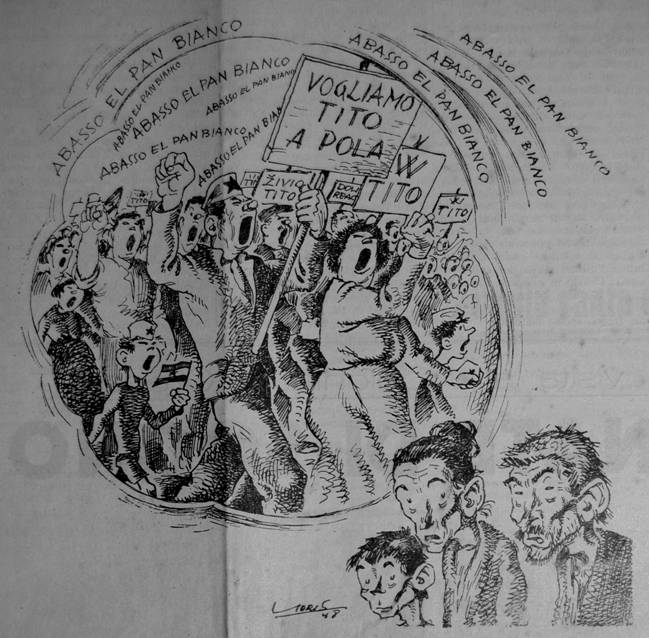 ABASSO EL PAN BIANCO
ABASSO EL PAN BIANCO
ABASSO EL PAN BIANCO
ABASSO EL PAN BIANCO
ABASSO EL PAN BIANCO
ABASSO EL PAN BIAN
ABASSO EL PAN BIANCO
ABASSO EL PAN BIANCO
ABASSO EL PAN BIANCO
VOGLIAMO
TITO
A POLA
W
TITO
ŽIVIO
TITO
TITO
TITO
48